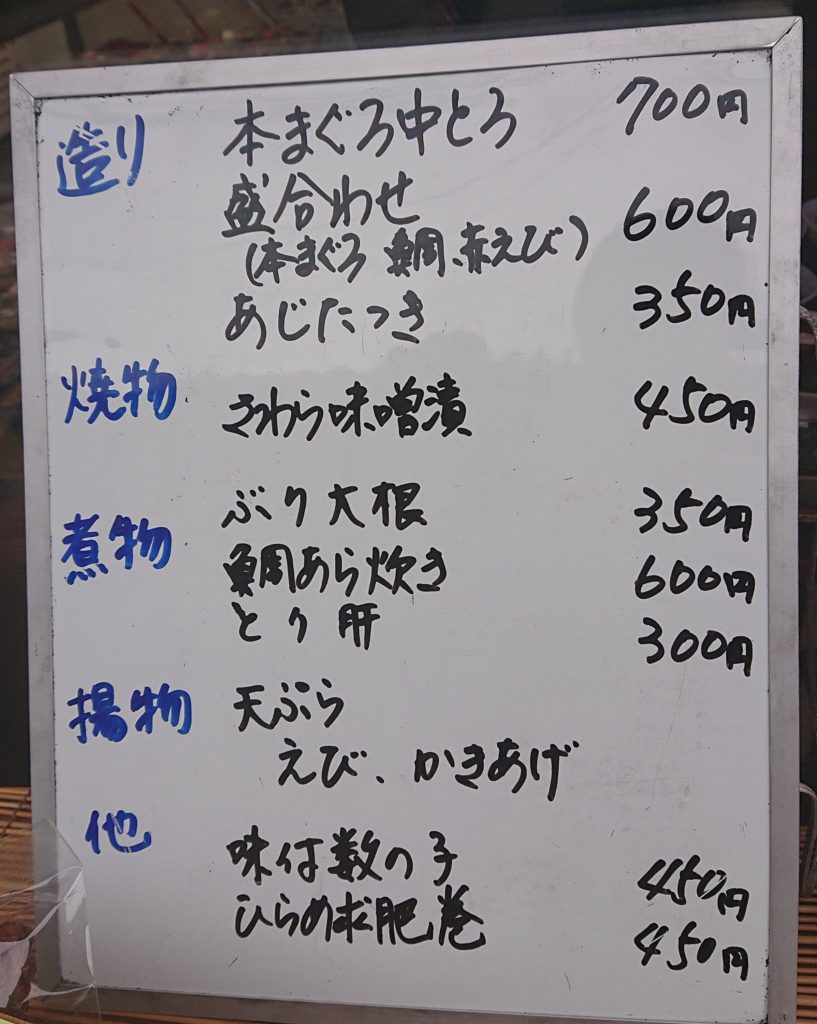 造り 本まぐろ中とろ 700円
盛合わせ 600円
(本まぐろ 鯛、赤えび)
あじたつき 350円
焼物 さわら味噌漬 450円
煮物 ぶり大根 350円
鯛あら炊き 600円
とり肝 300円
揚物 天ぷら
えび、かきあげ
他
味付数の子 450円
ひらめ求肥巻 450円